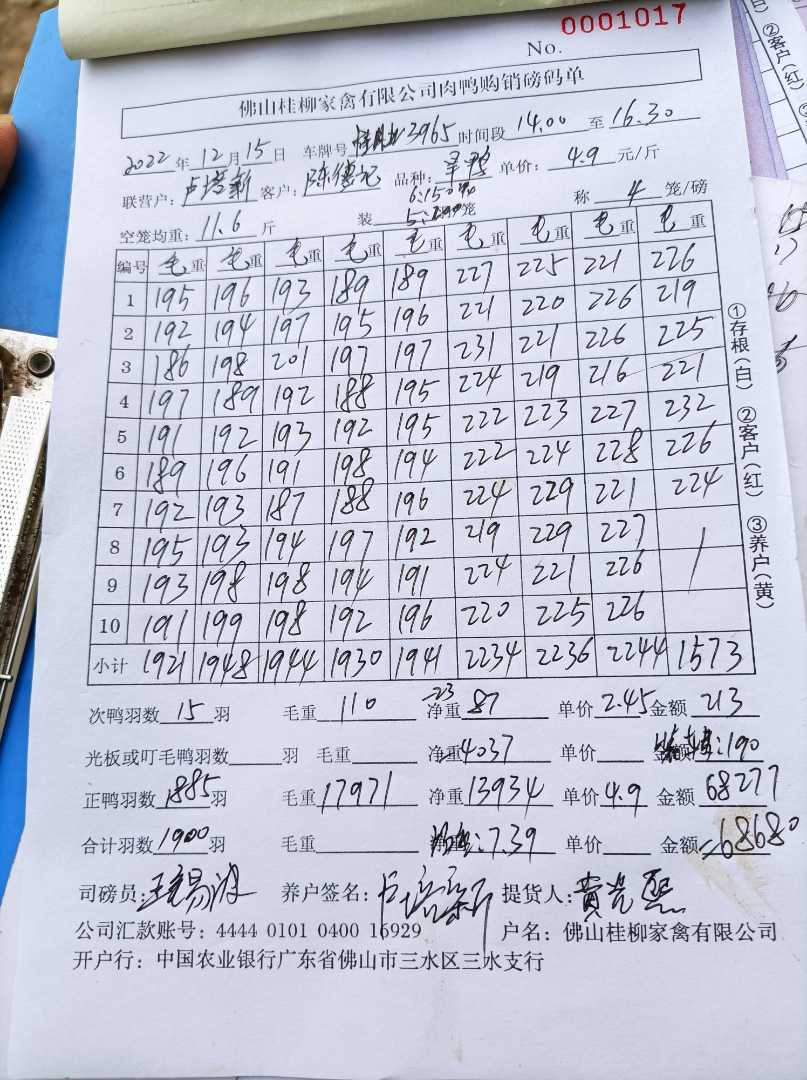 0001017
No.
佛山桂柳家禽有限公司肉鸭购销磅码单
2022年12月15日 车牌号 3965 时间段 14.00 至 16.30
联营户: 卢培新 客户: 陈德记 品种: 旱鸭 单价: 4.9 元/斤
空笼均重: 11.6 斤 装 6:150 5: 笼 称 4 笼/磅
编号 毛重 毛重 毛重 毛重 毛重 毛重 毛重 毛重 毛重
1 195 196 193 189 189 227 225 221 226
2 192 194 197 195 196 221 220 226 219
3 186 198 201 197 197 231 221 226 225
4 197 189 192 188 195 224 219 216 221
5 191 192 193 192 195 222 223 227 232
6 189 196 191 198 194 222 224 228 226
7 192 193 187 188 196 224 229 221 224
8 195 193 194 197 192 219 229 227
9 193 198 198 194 191 224 221 226
10 191 199 198 192 196 220 225 226
小计 1921 1948 1944 1930 1941 2234 2236 2244 1573
①存根(白) ②客户(红) ③养户(黄)
次鸭羽数 15 羽 毛重 110 -23 净重 87 单价 2.45 金额 213
光板或叮毛鸭羽数 羽 毛重 净重 4037 单价 金额 :190
正鸭羽数 1885 羽 毛重 17971 净重 13934 单价 4.9 金额 68277
合计羽数 1900 羽 毛重 净重 :7.39 单价 金额 =68680
司磅员: 养户签名: 卢培新 提货人:
公司汇款账号: 4444 0101 0400 16929 户名: 佛山桂柳家禽有限公司
开户行: 中国农业银行广东省佛山市三水区三水支行
②客户(红)